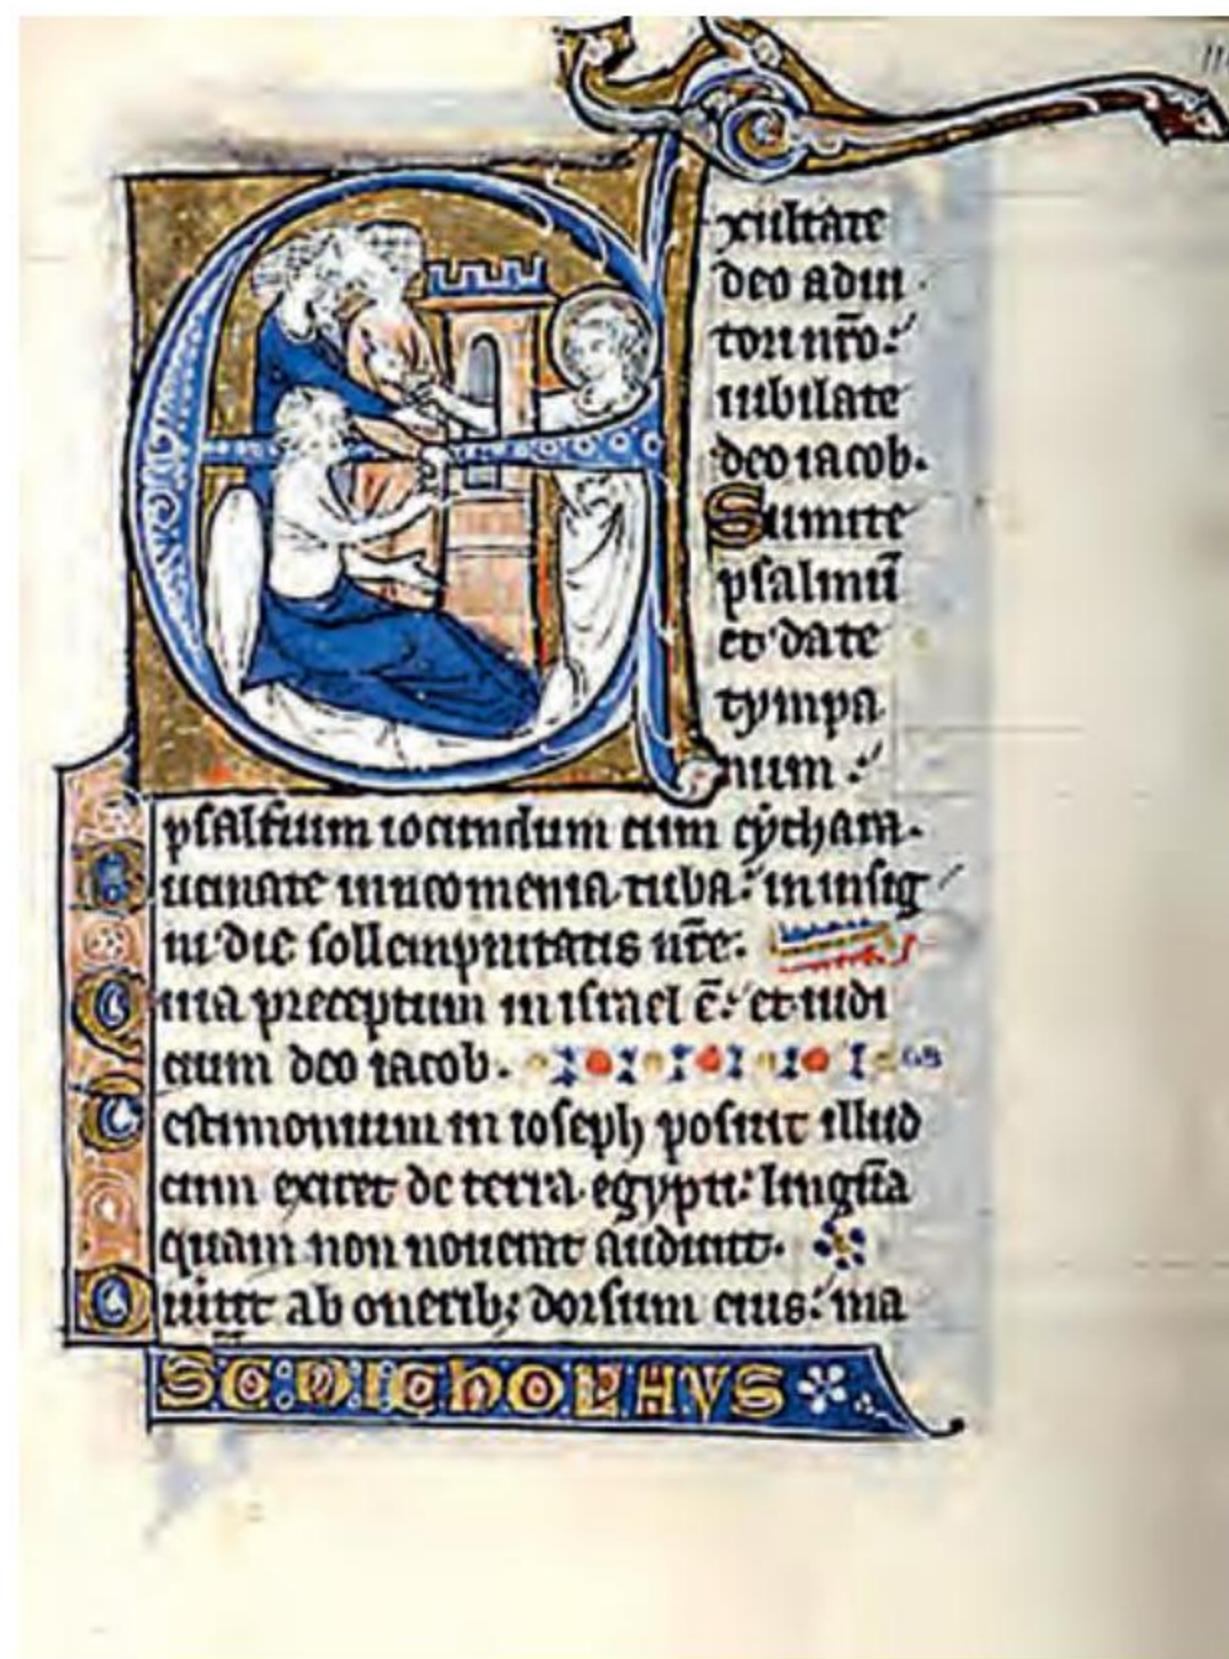 Exultate
deo adiu
tori nr̄o:
iubilate
deo iacob.
Sumite
psalmū
et date
tympa
num:
psalterium iocundum cum cythara.
Bucinate in neomenia tuba: in insig
ni die sollempnitatis nr̄e:
Quia preceptum in israel ē: et iudi
cium deo iacob.
Testimonium in ioseph posuit illud
cum exiret de terra egypti: linguā
quam non nouerat audiuit.
Diuertit ab onerib; dorsum eius: ma
SC: NICHOLAVS